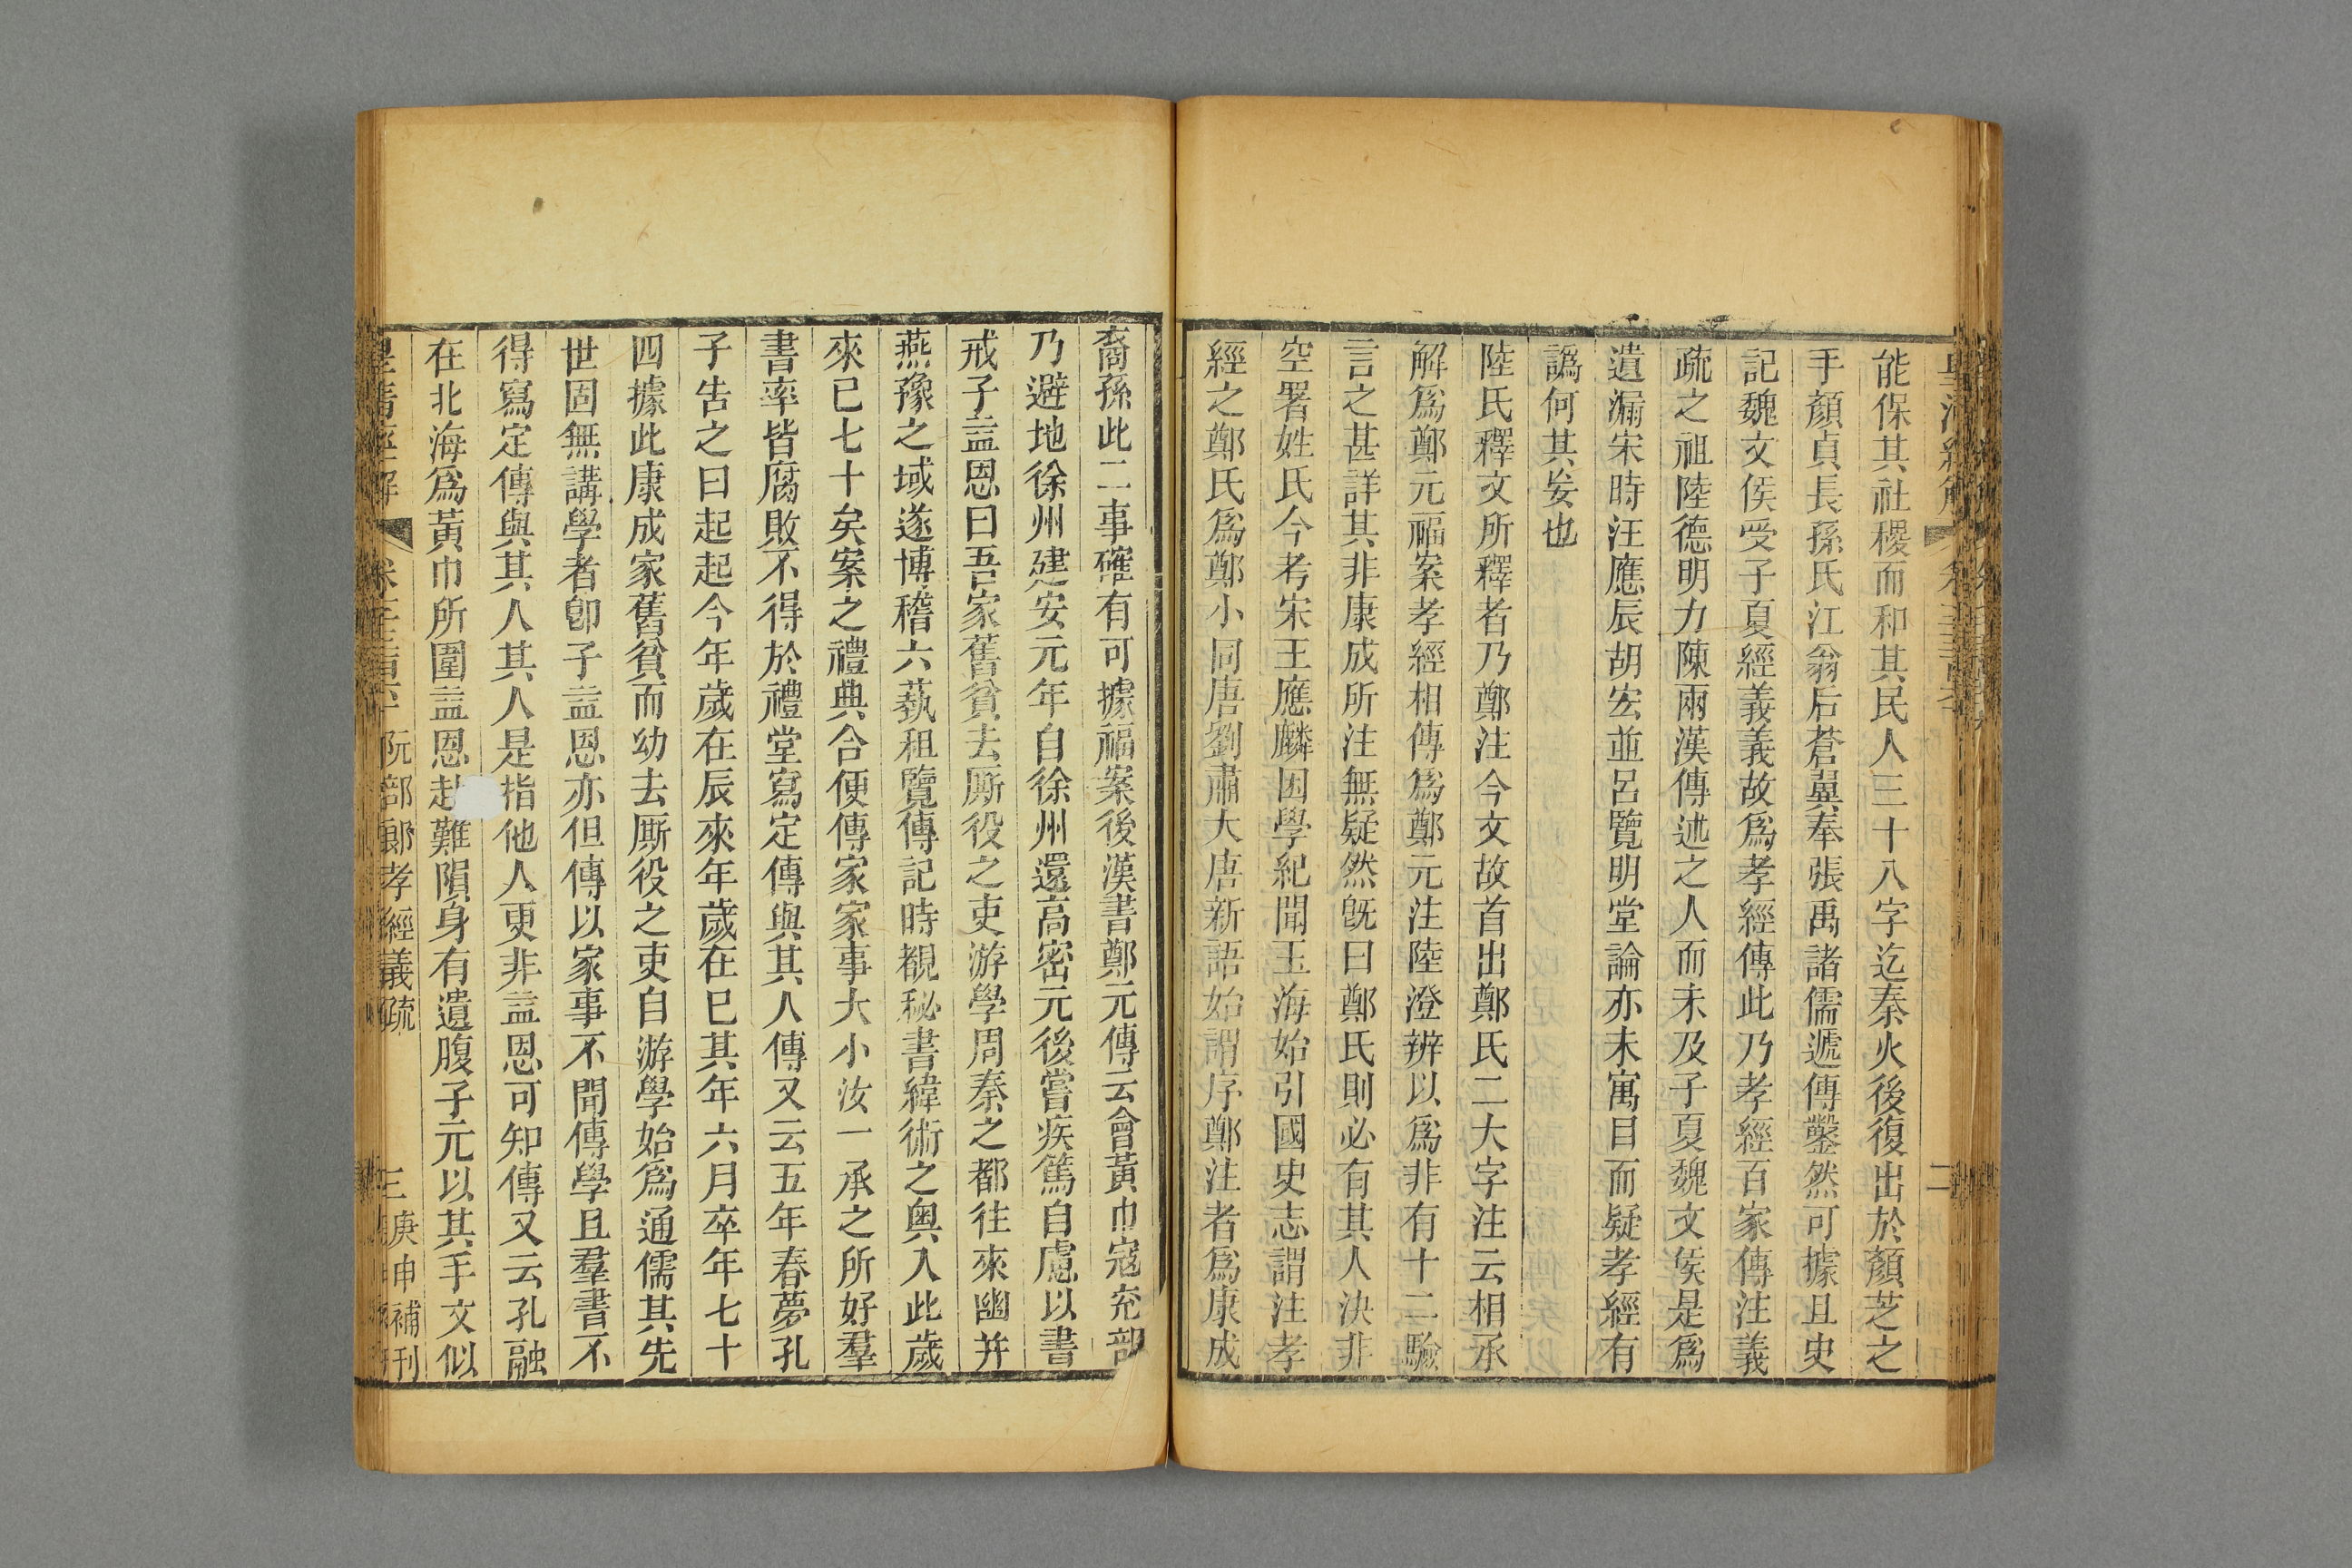 能保其社稷而和其民人三十八字迄秦火後復出於顏芝之
手顏貞長孫氏江翁后蒼翼奉張禹諸儒遞傳鑿然可據且史
記魏文侯受子夏經義義故爲孝經傳此乃孝經百家傳注義
疏之祖陸德明力陳兩漢傳述之人而未及子夏魏文侯是爲
遺漏宋時汪應辰胡宏並呂覽明堂論亦未寓目而疑孝經有
譌何其妄也
陸氏釋文所釋者乃鄭注今文故首出鄭氏二大字注云相承
解爲鄭元福案孝經相傳爲鄭元注陸澄辨以爲非有十二驗
言之甚詳其非康成所注無疑然旣曰鄭氏則必有其人決非
空署姓氏今考宋王應麟困學紀聞玉海始引國史志謂注孝
經之鄭氏爲鄭小同唐劉肅大唐新語始謂序鄭注者爲康成
裔孫此二事確有可據福案後漢書鄭元傳云會黃巾寇兗部
乃避地徐州建安元年自徐州還高密元後嘗疾篤自慮以書
戒子益恩曰吾家舊貧去厮役之吏游學周秦之都往來幽并
燕豫之域遂博稽六藝粗覽傳記時覩秘書緯術之奧入此歲
來已七十矣案之禮典合便傳家家事大小汝一承之所好羣
書率皆腐敗不得於禮堂寫定傳與其人傳又云五年春夢孔
子告之曰起起今年歲在辰來年歲在巳其年六月卒年七十
四據此康成家舊貧而幼去厮役之吏自游學始爲通儒其先
世固無講學者卽子益恩亦但傳以家事不聞傳學且羣書不
得寫定傳與其人其人是指他人更非益恩可知傳又云孔融
在北海爲黃巾所圍益恩赴難隕身有遺腹子元以其手文似
皇清經解 阮部郎孝經義疏 三 庚申補刊